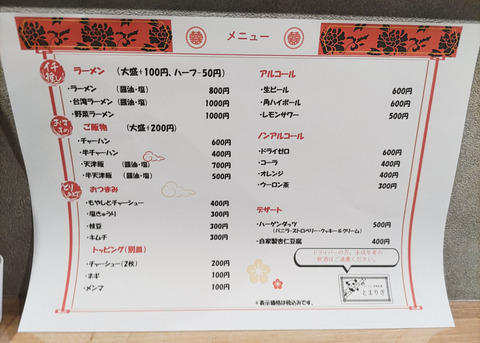 メニュー
イチ推し
ラーメン (大盛+100円、ハーフ-50円)
・ラーメン (醤油・塩) 800円
・台湾ラーメン (醤油・塩) 1000円
・野菜ラーメン 1000円
おすすめ
ご飯物 (大盛+200円)
・チャーハン 600円
・半チャーハン 400円
・天津飯 (醤油・塩) 700円
・半天津飯 (醤油・塩) 500円
おつまみ
・もやしとチャーシュー 400円
・塩きゅうり 300円
・枝豆 300円
・キムチ 300円
トッピング(別皿)
・チャーシュー(2枚) 200円
・ネギ 100円
・メンマ 100円
アルコール
・生ビール 600円
・角ハイボール 600円
・レモンサワー 500円
ノンアルコール
・ドライゼロ 600円
・コーラ 400円
・オレンジ 400円
・ウーロン茶 300円
デザート
・ハーゲンダッツ 500円
(バニラ・ストロベリー・クッキー&クリーム)
・自家製杏仁豆腐 400円
ドライバーの方、未成年者の
飲酒はご遠慮ください。
とまりぎ
*表示価格は税込みです。